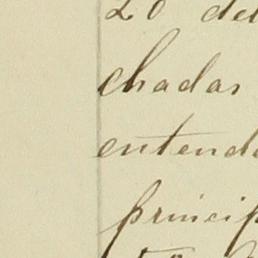 20 del
chadas
entend
princip